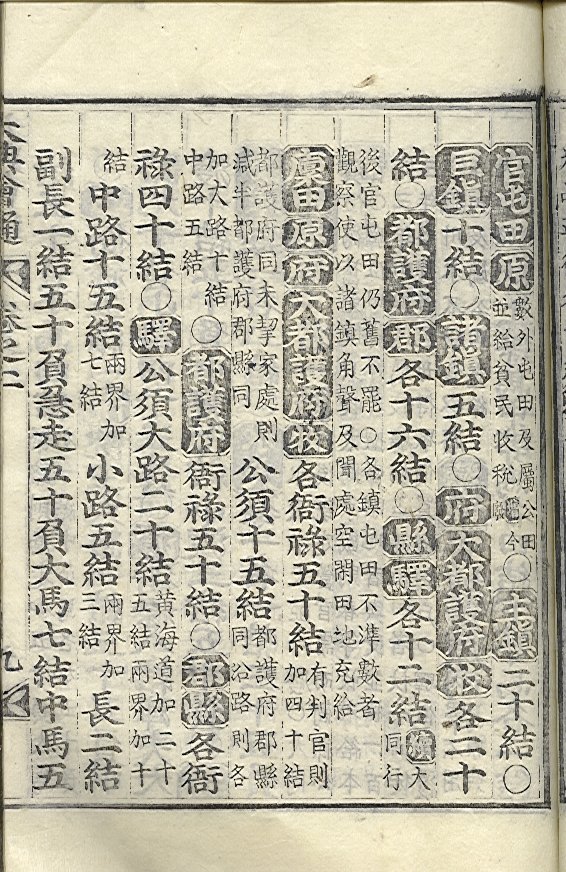 官屯田原數外屯田及屬公田並給貧民收稅今○主鎭二十結○
巨鎭十結○諸鎭五結○府大都護府牧各二十
結○都護府郡各十六結○縣驛各十二結續大同行
後官屯田仍舊不罷○各鎭屯田不準數者觀察使以諸鎭角聲及聞處空閑田地充給
廩田原府大都護府牧各衙祿五十結有判官則加四十結
都護府同未挈家處則減半都護府郡縣同公須十五結都護府郡縣同沿路則各
加大路十結中路五結○都護府衙祿五十結○郡縣各衙
祿四十結○驛公須大路二十結黃海道加二十五結兩界加十
結中路十五結兩界加七結小路五結兩界加三結長二結
副長一結五十負急走五十負大馬七結中馬五
大典會通 卷之二 九